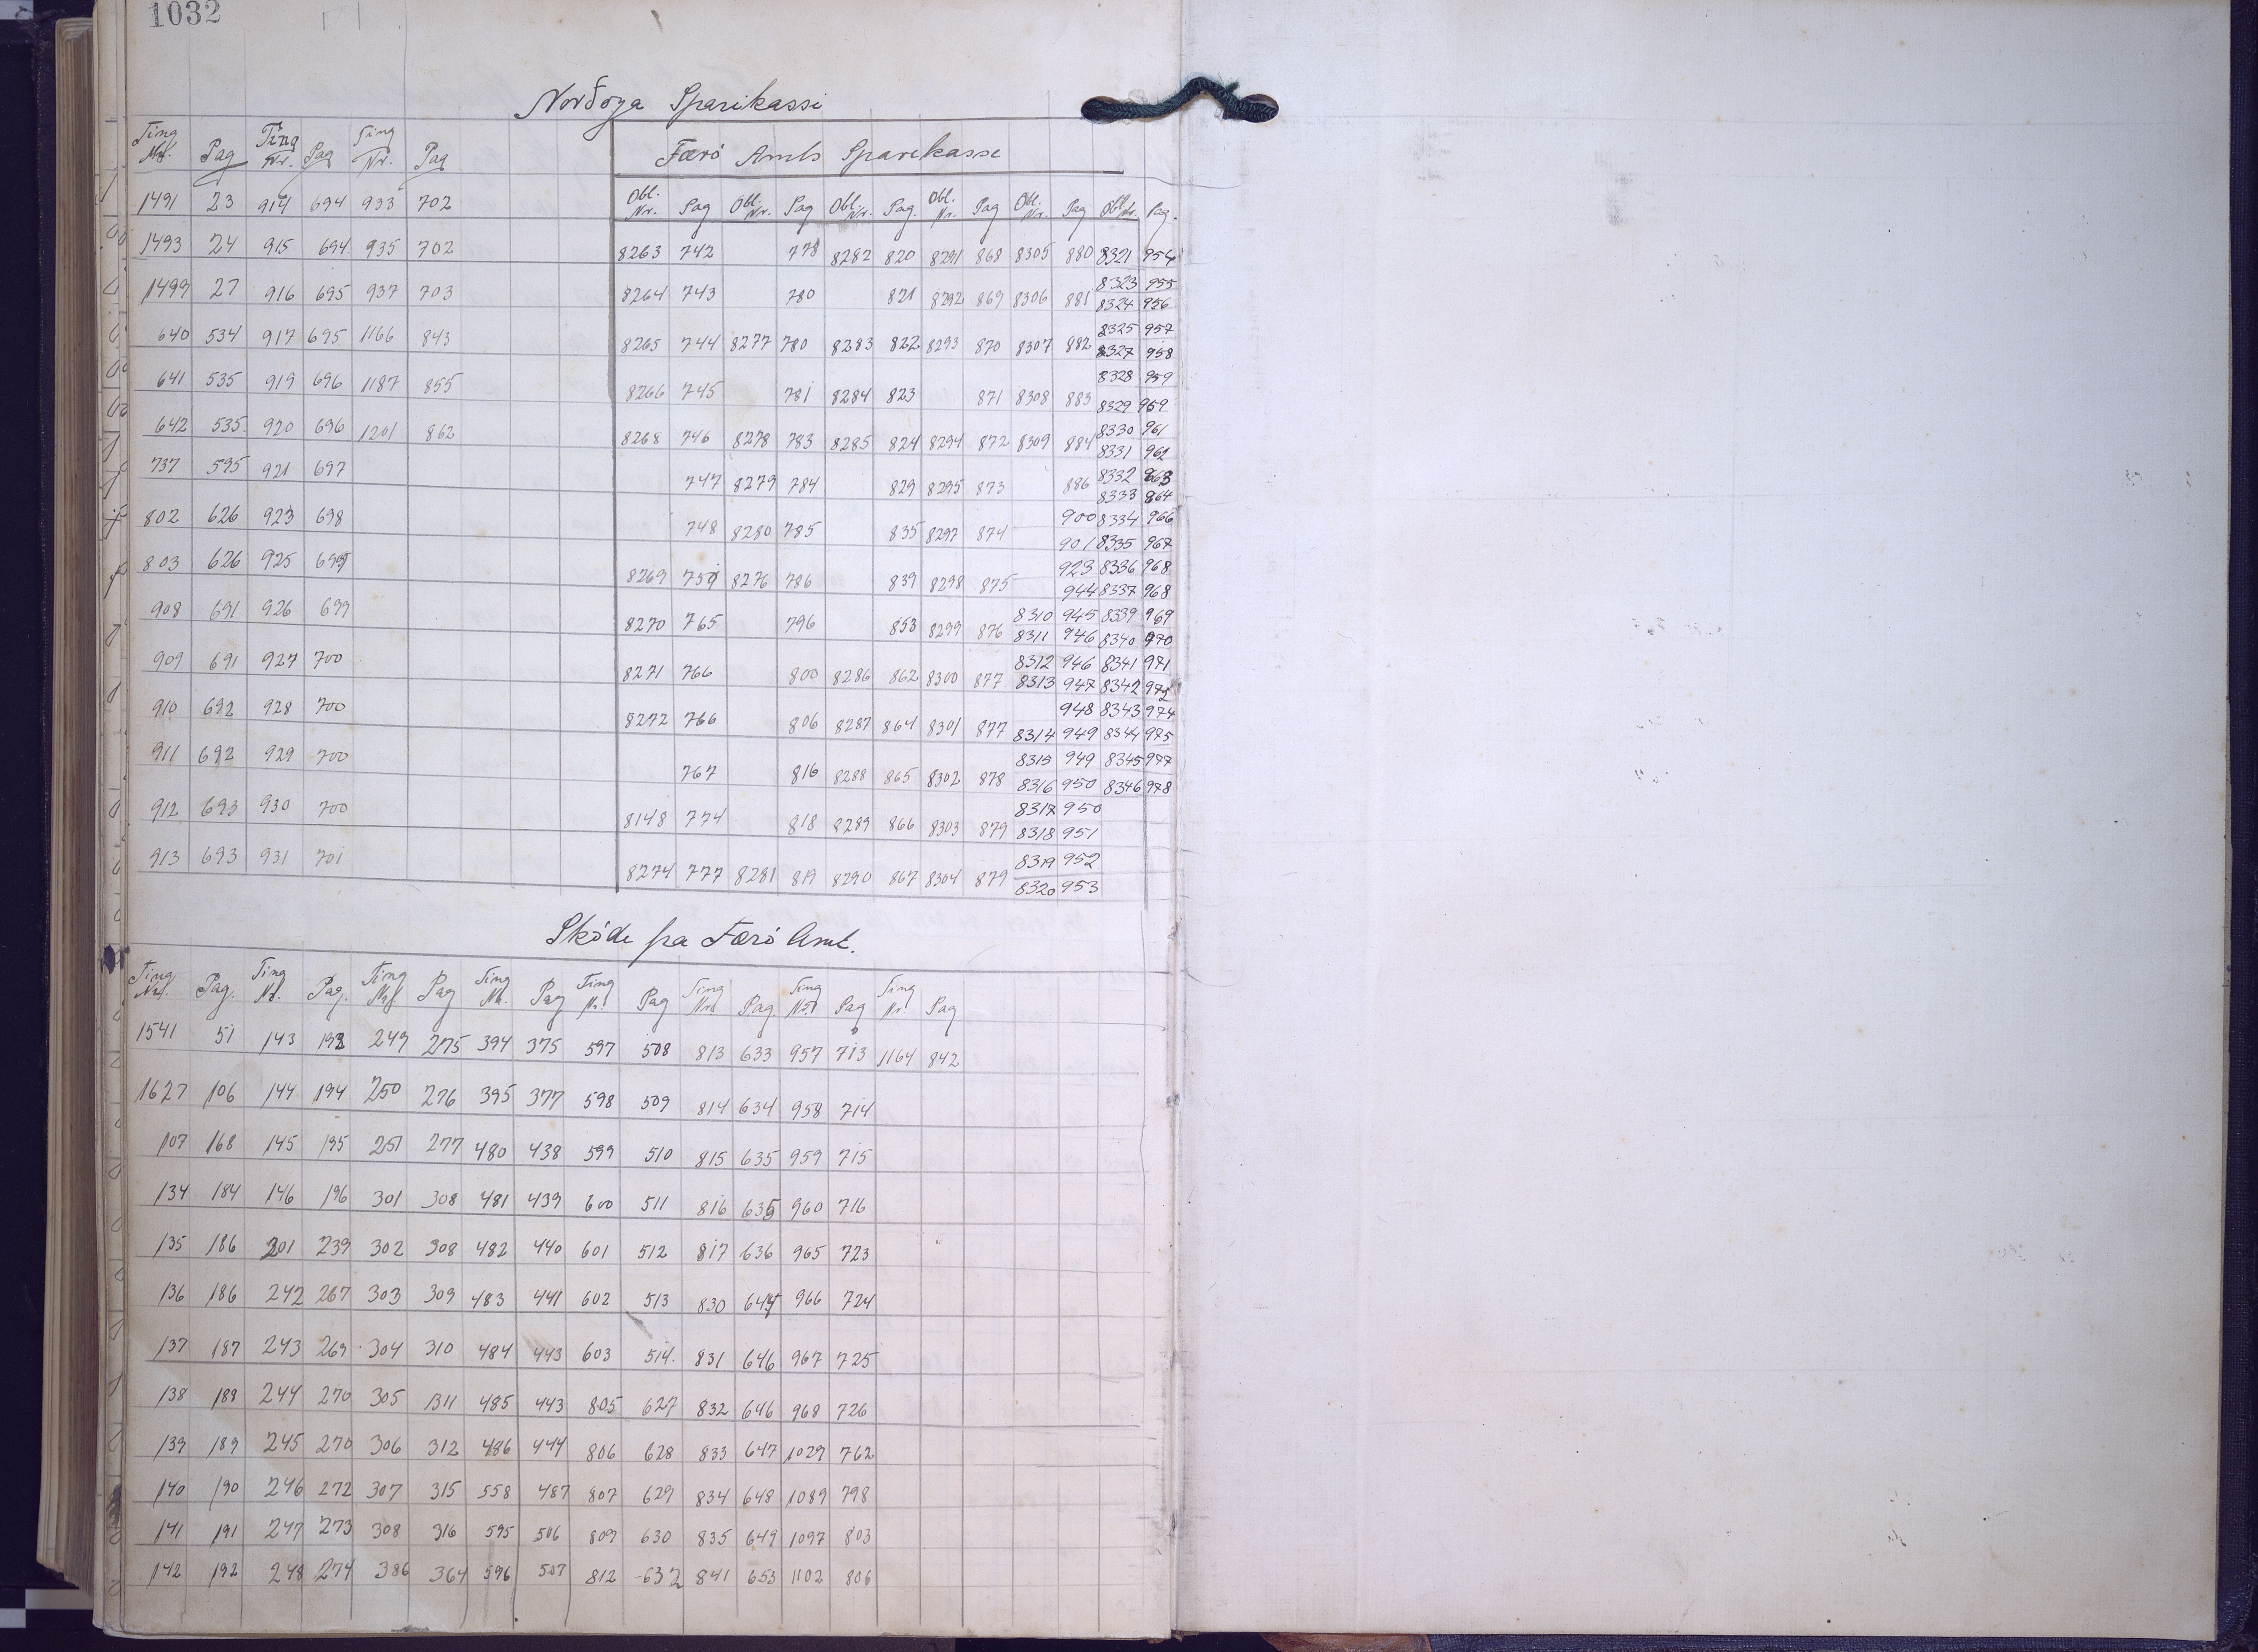 1032
Norðoya Sparikassi
Ting Nr. Pag Ting Nr. Pag Ting Nr. Pag
1491 23 914 694 933 702
1493 24 915 694 935 702
1499 27 916 695 937 703
640 534 917 695 1166 843
641 535 919 696 1187 855
642 535 920 696 1201 862
737 595 921 697
802 626 923 698
803 626 925 699
908 691 926 699
909 691 927 700
910 692 928 700
911 692 929 700
912 693 930 700
913 693 931 701
Færö Amts Sparekasse
Obl. Nr. Pag Obl. Nr. Pag Obl. Nr. Pag. Obl. Nr. Pag Obl. Nr. Pag Obl. Nr. Pag.
8263 742 778 8282 820 8291 868 8305 880 8321 954
8323 955
8264 743 780 821 8292 869 8306 881 8324 956
8325 957
8265 744 8277 780 8283 822 8293 870 8307 882 8327 958
8328 959
8266 745 781 8284 823 871 8308 883 8329 959
8330 961
8268 746 8278 783 8285 824 8294 872 8309 884 8331 962
8332 963
747 8279 784 829 8295 873 886 8333 964
900 8334 966
748 8280 785 835 8297 874 901 8335 967
923 8336 968
8269 751 8276 786 839 8298 875 944 8337 968
8310 945 8339 969
8270 765 796 853 8299 876 8311 946 8340 970
8312 946 8341 971
8271 766 800 8286 862 8300 877 8313 947 8342 972
948 8343 974
8272 766 806 8287 864 8301 877 8314 949 8344 975
8315 949 8345 977
767 816 8288 865 8302 878 8316 950 8346 978
8317 950
8148 774 818 8289 866 8303 879 8318 951
8319 952
8274 777 8281 819 8290 867 8304 879 8320 953
Skøde fra Færö Amt.
Ting Nr. Pag. Ting Nr. Pag. Ting Nr. Pag Ting Nr. Pag Ting Nr. Pag Ting Nr. Pag Ting Nr. Pag Ting Nr. Pag
1541 51 143 193 249 275 394 375 597 508 813 633 957 713 1164 842
1627 106 144 194 250 276 395 377 598 509 814 634 958 714
107 168 145 195 251 277 480 438 599 510 815 635 959 715
134 184 146 196 301 308 481 439 600 511 816 635 960 716
135 186 201 239 302 308 482 440 601 512 817 636 965 723
136 186 242 267 303 309 483 441 602 513 830 645 966 724
137 187 243 269 304 310 484 443 603 514. 831 646 967 725
138 188 244 270 305 311 485 443 805 627 832 646 968 726
139 189 245 270 306 312 486 444 806 628 833 647 1029 762
140 190 246 272 307 315 558 487 807 629 834 648 1089 798
141 191 247 273 308 316 595 506 809 630 835 649 1097 803
142 192 248 274 386 364 596 507 812 632 841 653 1102 806